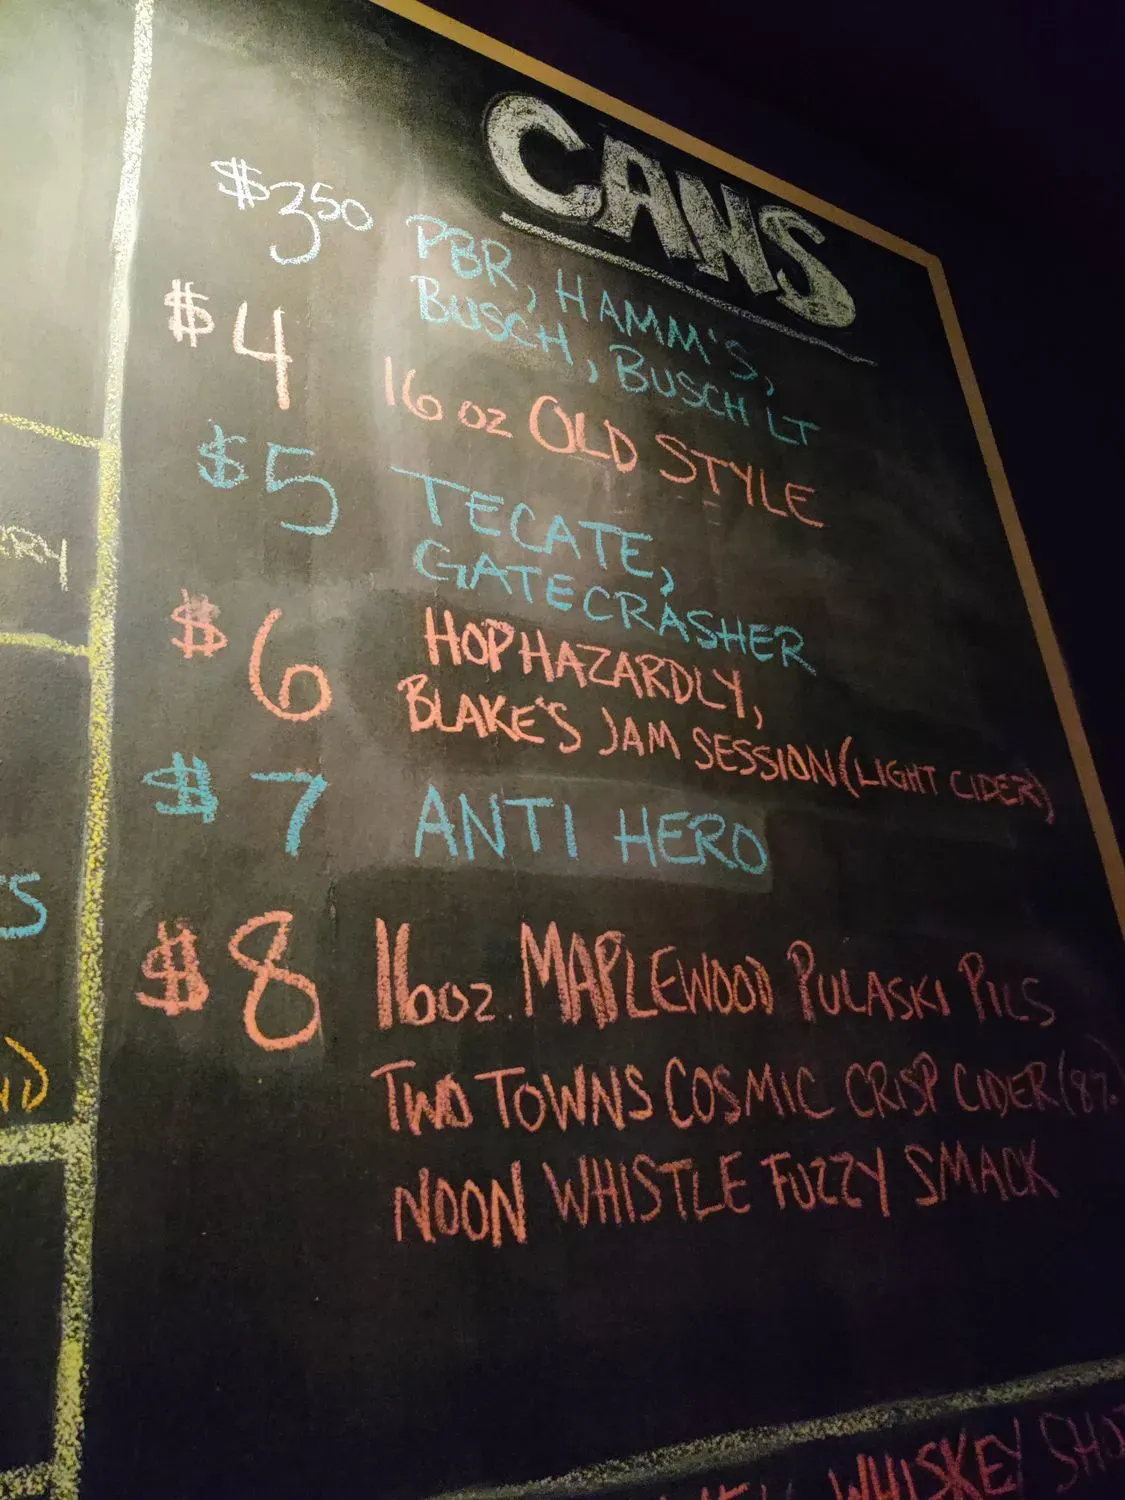 CANS
$350 PBR, HAMM'S,
BUSCH, BUSCH LT
$4 16 oz OLD STYLE
$5 TECATE,
GATECRASHER
$6 HOPHAZARDLY,
BLAKE'S JAM SESSION (LIGHT CIDER)
$7 ANTI HERO
$8 16oz. MAPLEWOOD PULASKI PILS
TWO TOWNS COSMIC CRISP CIDER (8%
NOON WHISTLE FUZZY SMACK
WHISKEY